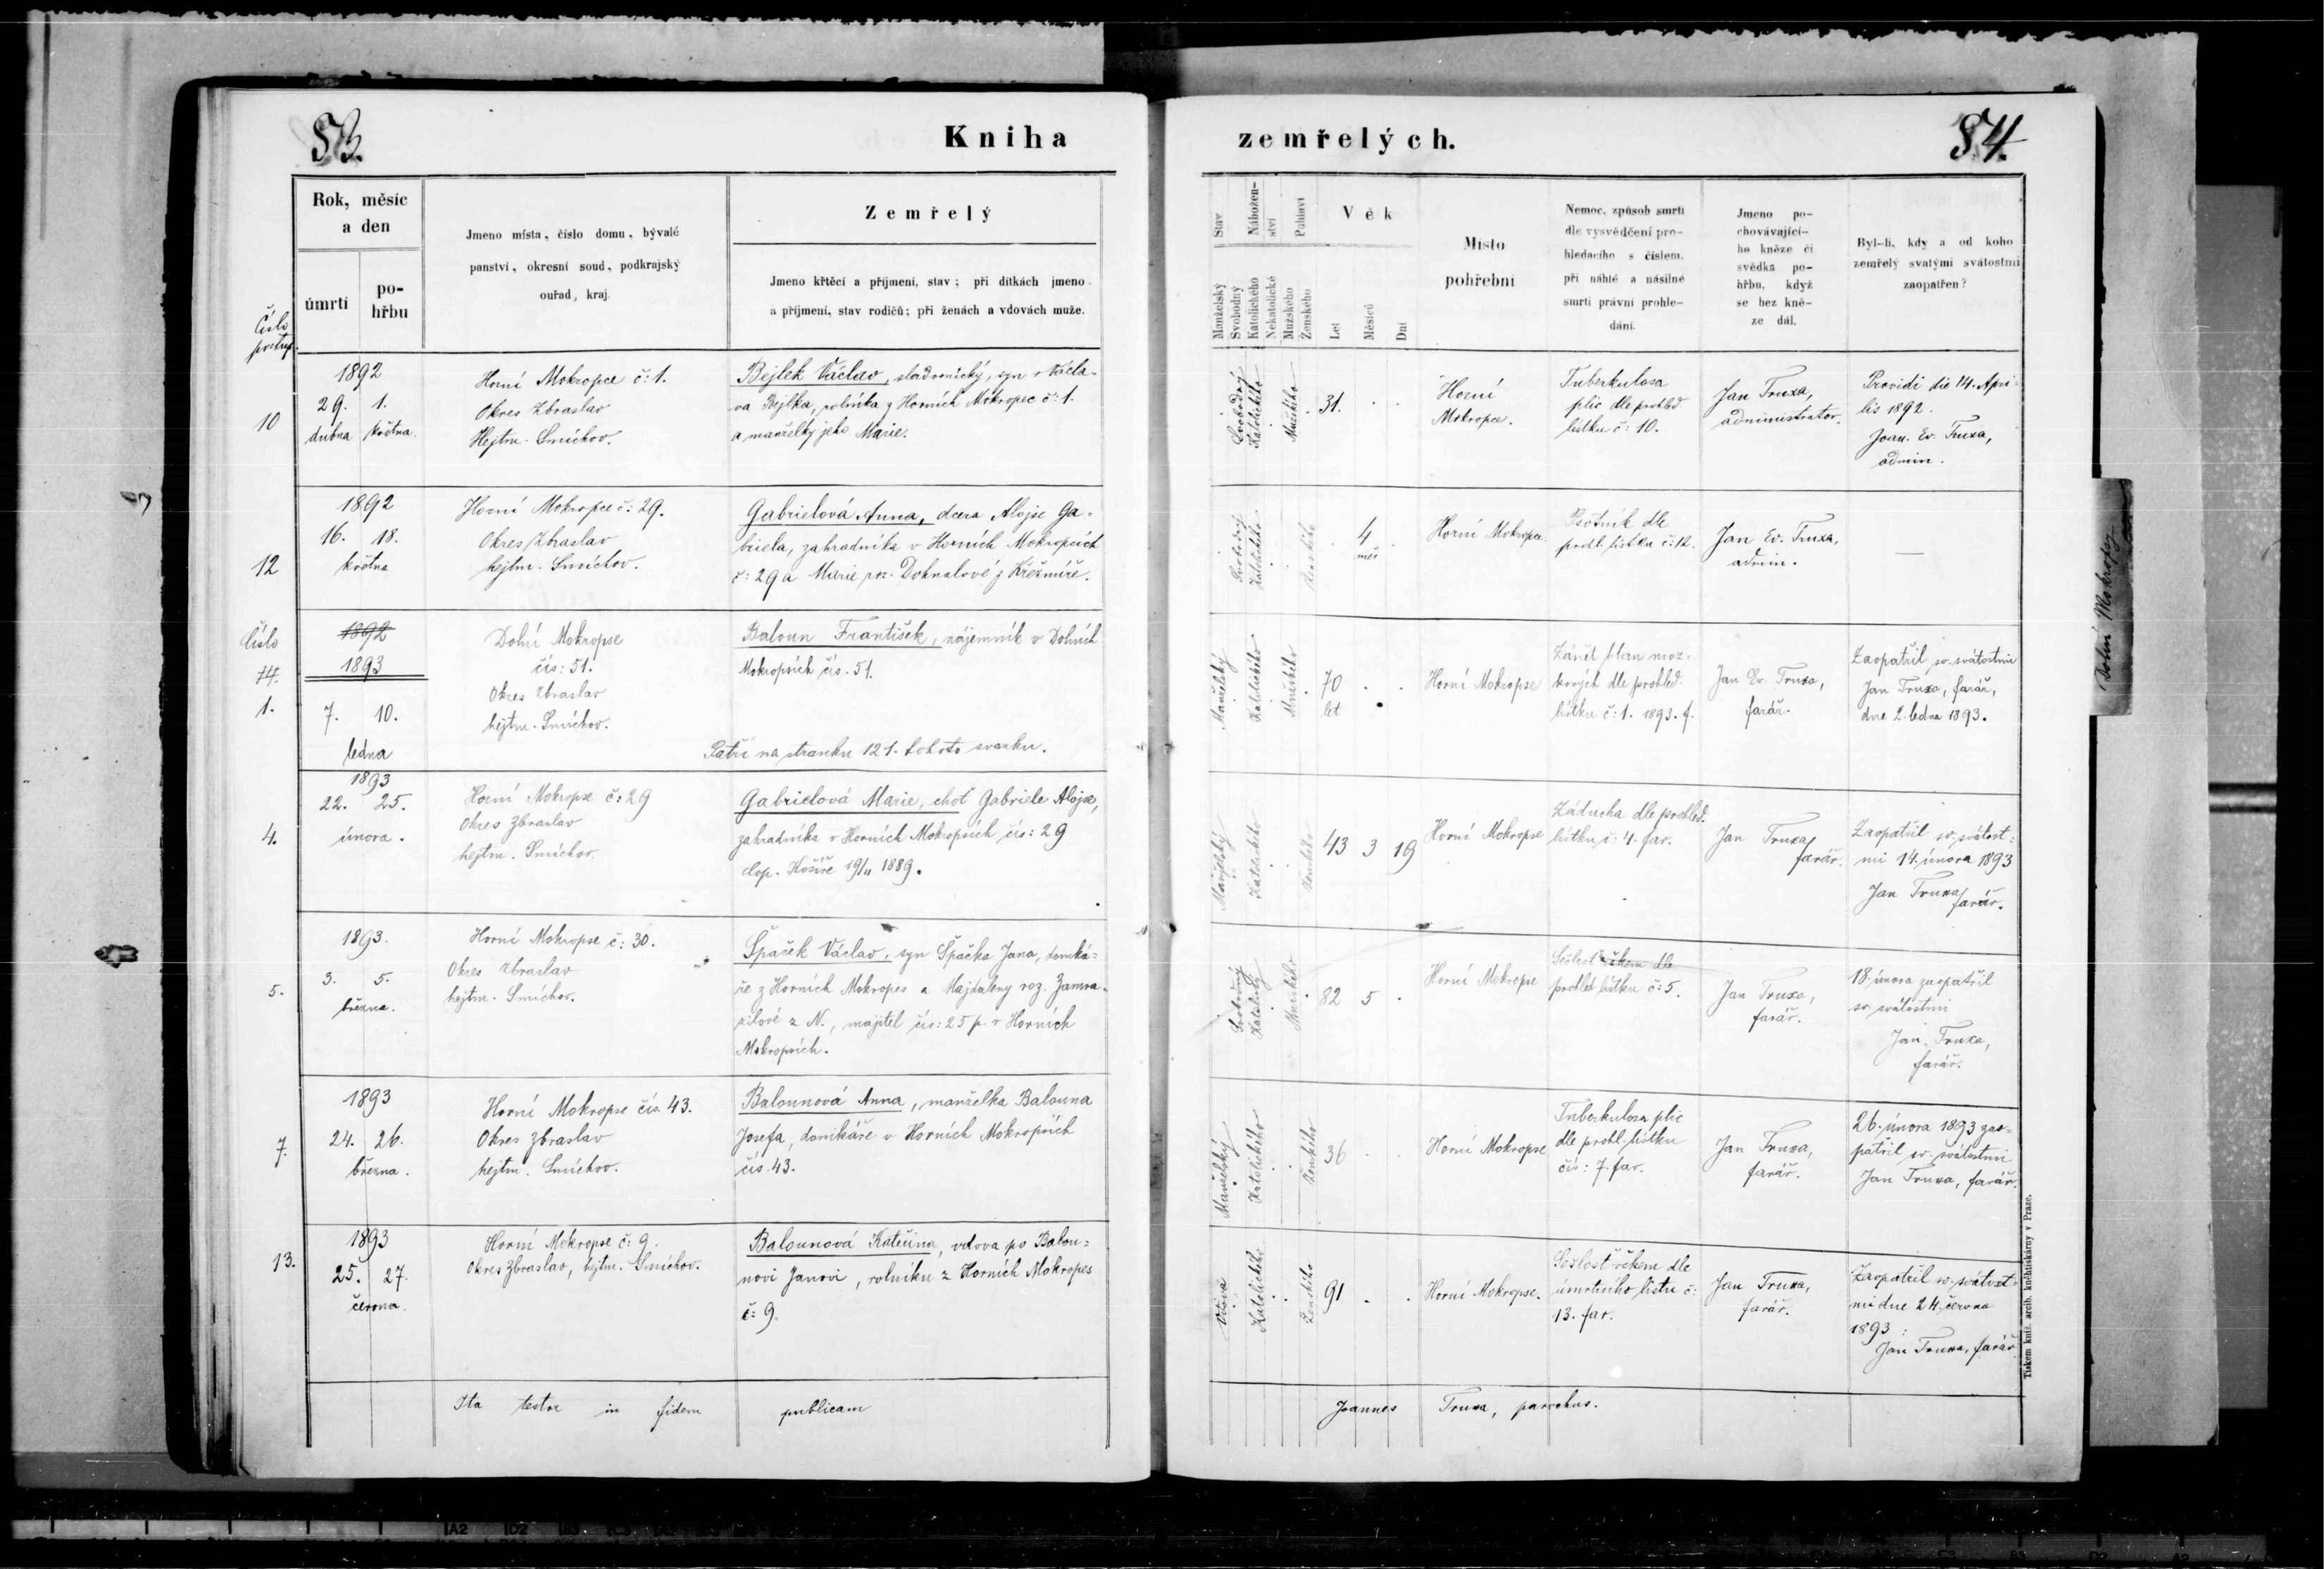 83.
Kniha
zemřelých.
84.
Rok, měsíc
a den
úmrtí
po-
hřbu
Jmeno místa, číslo domu, bývalé
panství, okresní soud, podkrajský
ouřad, kraj.
Zemřelý
Jmeno křtěcí a příjmení, stav; při dítkách jmeno
a příjmení, stav rodičů; při ženách a vdovách muže.
Stav
Nábožen-
ství
Pohlaví
Manželský
Svobodný
Katolického
Nekatolické
Mužského
Ženského
Věk
Let
Měsíců
Dní
Místo
pohřební
Nemoc, způsob smrti
dle vysvědčení pro-
hledacího s číslem,
při náhlé a násilné
smrti právní prohle-
dání.
Jmeno po-
chovávající-
ho kněze či
svědka po-
hřbu, když
se bez kně-
ze dál.
Byl-li, kdy a od koho
zemřelý svatými svátostmi
zaopatřen?
Číslo
postup.
10
1892
29. 1.
dubna května.
Horní Mokropce č: 1.
Okres Zbraslav
Hejtm. Smíchov.
Bejlek Václav, sladovnický, syn Václa-
va Bejlka, rolníka z Horních Mokropec č: 1.
a manželky jeho Marie.
Svobodný
Katolického
Mužského
31.
Horní
Mokropce.
Tuberkulosa
plic dle prohled.
lístku č: 10.
Jan Truxa,
administrator.
Providi die 14. Apri-
lis 1892.
Joan. Ev. Truxa,
admin.
12
1892
16. 18.
května
Horní Mokropce č: 29.
Okres Zbraslav
hejtm. Smíchov.
Gabrielová Anna, dcera Alojse Ga-
briela, zahradníka v Horních Mokropcích
č: 29 a Marie roz. Dohnalové z
Svobodný
Katolického
Ženského
4
měs
Horní Mokropce
Psotník dle
prohl. lístku č: 12.
Jan Ev. Truxa,
admin.
—
Číslo
1.
1892
1893
7. 10.
ledna
Dolní Mokropse
čís: 51.
Okres Zbraslav
hejtm. Smíchov.
Baloun František, nájemník v Dolních
Mokropsích čís. 51.
Patří na stranku 121. tohoto svazku.
Manželský
Katolického
Mužského
70
let
Horní Mokropse
Zánět blan moz-
kových dle prohled.
lístku č: 1. 1893. f.
Jan Ev. Truxa,
farář.
Zaopatřil sv. svátostmi
Jan Truxa, farář,
dne 2. ledna 1893.
4.
1893
22. 25.
února.
Horní Mokropse č: 29
Okres Zbraslav
hejtm. Smíchov.
Gabrielová Marie, choť Gabriele Alojse,
zahradníka v Horních Mokropsích čís: 29
cop. Košíře 19/11 1889.
Manželský
Katolického
Ženského
43 3 19
Horní Mokropse
Záducha dle prohled.
lístku č: 4. far.
Jan Truxa,
farář.
Zaopatřil sv. svátost-
mi 14. února 1893
Jan Truxa,
farář.
5.
1893.
3. 5.
března.
Horní Mokropse č: 30.
Okres Zbraslav
hejtm. Smíchov.
Špaček Václav, syn Špačka Jana, domká-
ře z Horních Mokropes a Majdaleny roz. Zamra-
zilové z N., majitel čís: 25 p. v Horních
Mokropsích.
Svobodný
Katolický
Mužského
82 5
Horní Mokropse
Sešlost dle
prohled lístku č: 5.
Jan Truxa,
farář.
18. února zaopatřil
sv. svátostmi
Jan Truxa,
farář.
7.
1893
24. 26.
března.
Horní Mokropse čís. 43.
Okres Zbraslav
hejtm. Smíchov.
Balounová Anna, manželka Balouna
Josefa, domkáře v Horních Mokropsích
čís. 43.
Manželský
Katolického
Ženského
36
Horní Mokropse
Tuberkulosa plic
dle prohl. lístku
čís: 7. far.
Jan Truxa,
farář.
26. února 1893 zao-
patřil sv. svátostmi
Jan Truxa, farář.
13.
1893
25. 27.
června.
Horní Mokropse č: 9.
Okres Zbraslav, hejtm. Smíchov.
Balounová Kateřina, vdova po Balou-
novi Janovi, rolníku z Horních Mokropes
č: 9.
Vdova
Katolického
Ženského
91
Horní Mokropse.
Sešlost věkem dle
úmrtního listu č:
13. far.
Jan Truxa,
farář.
Zaopatřil sv. svátost-
mi dne 24. června
1893:
Jan Truxa, farář.
Ita testor in fidem publicam
Joannes Truxa, parochus.
Tiskem kníž. arcib. kněhtiskárny v Praze.
Dolní Mokropsy